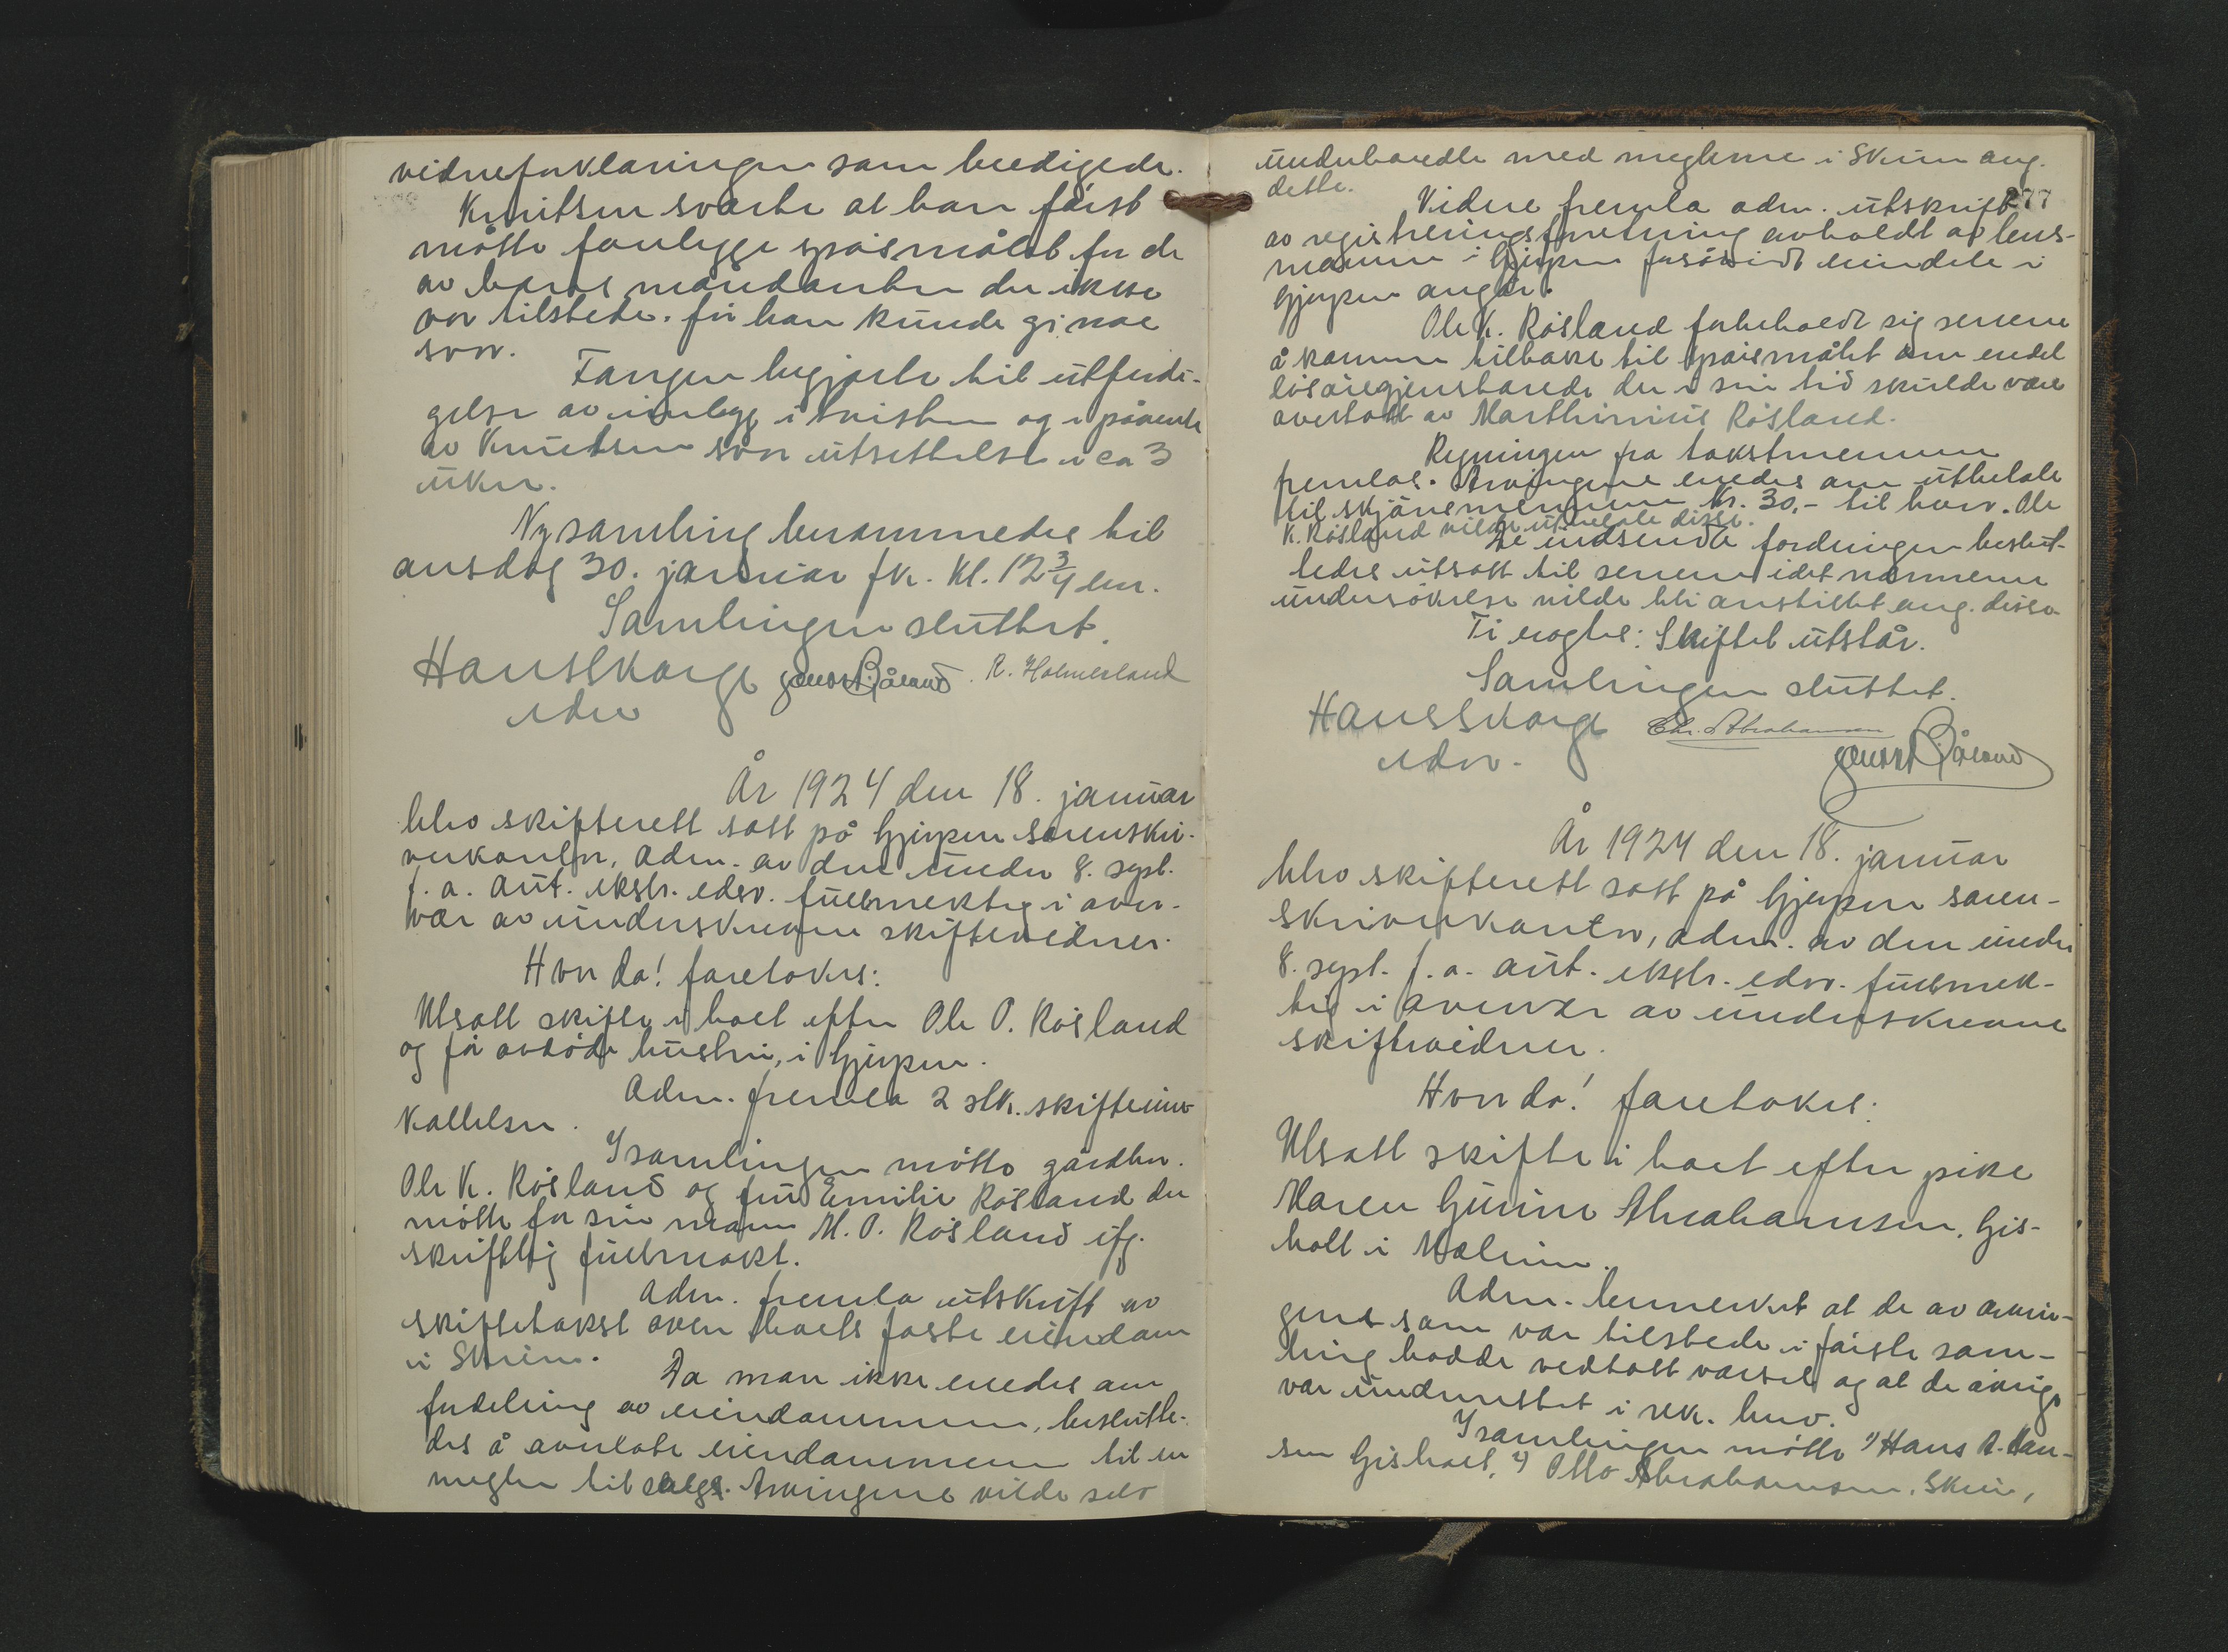 vidneforklaringen som beedigede.
Knutsen svarte at han først
måtte forelegge spørsmålet for de
av hans mandanter der ikke
var tilstede. før han kunde gi noe
svar.
Fangen begjærte til utferdi-
gelse av innlegg i tvisten og i påvente
av Knutsens svar utsettelse i ca 3
uker.
Ny samling berammedes til
onsdag 30. januar fk. kl. 12 3/4 em.
Samlingen sluttet.
Hans Skorge Gunnar Bjåland. R. Holmesland
edsv
År 1924 den 18. januar
blev skifterett satt på Gjerpen sorenskri-
verkontor, adm. av den under 8. sept.
f. a. aut. ekstr. edsv. fullmektig i over-
vær av underskrevne skiftevidner.
Hvor da! foretokes:
Utsatt skifte i boet efter Ole O. Røsland
og før avdøde hustru, i Gjerpen.
Adm. fremla 2 stk. skifteinn-
kallelser.
I samlingen møtte gårdbr.
Ole K. Røsland og fru Emilie Røsland der
møtte for sin mann M. O. Røsland ifg.
skriftlig fullmakt.
Adm. fremla utskrift av
skiftetakst over boets faste eiendom
i Skien.
Da man ikke enedes om
fordeling av eiendommen, beslutte-
des å overlate eiendommen til en
megler til salgs. Arvingene vilde selv
underhandle med meglerne i Skien ang.
dette.
277
Videre fremla adm. utskrift
av registreringsforretning avholdt av lens-
mannen i Gjerpen forsåvidt eiendele i
Gjerpen angår.
Ole K. Røsland forbeholdt sig senere
å komme tilbake til spørsmålet om endel
løsøregjenstande der i sin tid skulde være
overtatt av Marthinius Røsland.
Regningen fra takstmennene
fremlas. Arvingene enedes om utbetale
til skjønsmennene kr. 30,- til hver. Ole
K. Røsland vilde utbetale disse.
De innsendte fordringer beslut-
tedes utsatt til senere idet nærmere
undersøkelse vilde bli anstillet ang. disse
Ti eragtes: Skiftet utstår.
Samlingen sluttet.
Hans Skorge Chr. Abrahamsen
edsv. Gunnar Bjåland
År 1924 den 18. januar
blev skifterett satt på Gjerpen soren-
skriverkontor, adm. av den under
8. sept. f. a. aut. ekstr. edsv. fullmek-
tig i overvær av underskrevne
skiftevidner.
Hvor da! foretokes:
Utsatt skifte i boet efter pike
Maren Gurine Abrahamsen, Gis-
holt i Mælum.
Adm. bemerket at de av arvin-
gene som var tilstede i første sam-
ling hadde vedtatt varsel og at de øvrige
var underrettet i rek. brev.
I samlingen møtte 1) Hans A. Han-
sen Gisholt, 2) Otto Abrahamsen, Skien,